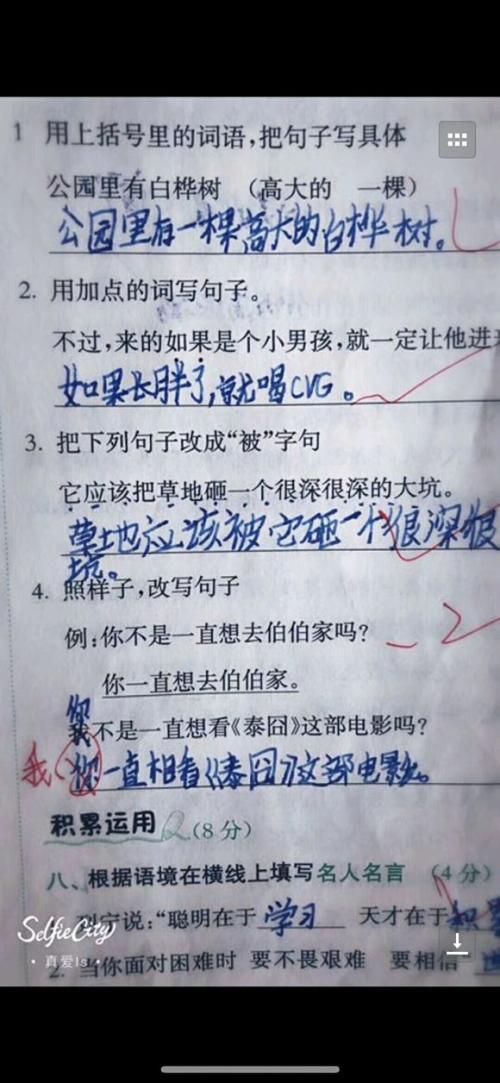 1 用上括号里的词语,把句子写具体
公园里有白桦树 (高大的 一棵)
公园里有一棵高大的白桦树。
2. 用加点的词写句子。
不过,来的如果是个小男孩,就一定让他进
如果长胖了,就喝CVG。
3. 把下列句子改成“被”字句
它应该把草地砸一个很深很深的大坑。
草地应该被它砸一个很深很
坑。
4. 照样子,改写句子
例:你不是一直想去伯伯家吗?
你一直想去伯伯家。
你
我不是一直想看《泰囧》这部电影吗?
我 你一直相看《泰囧》这部电影。
积累运用 (8分)
八、根据语境在横线上填写名人名言 (4分)
列宁说:“聪明在于 学习 天才在于 积累
2. 当你面对困难时 要不畏艰难 要相信
SelfieCity
· 真爱ls ·